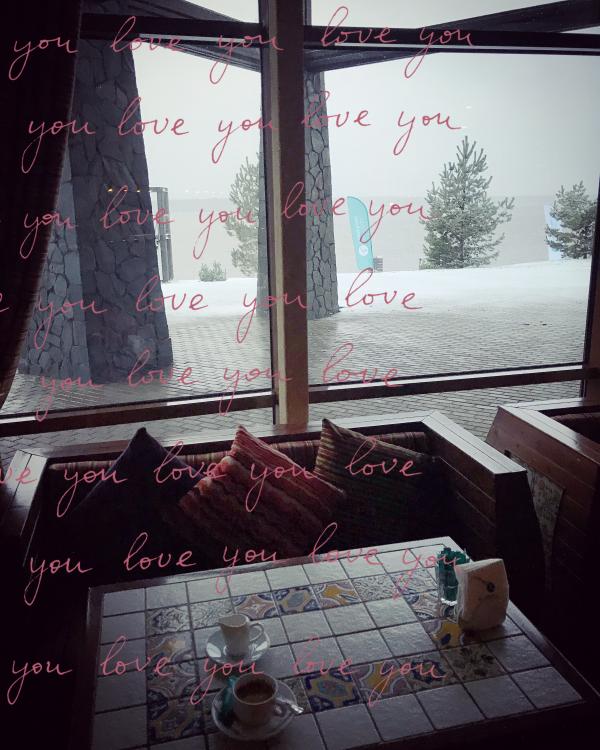 you love you love you
you love you love you
you love you love you
you love you love
you love you love
love you love you love
you love you love you
you love you love you